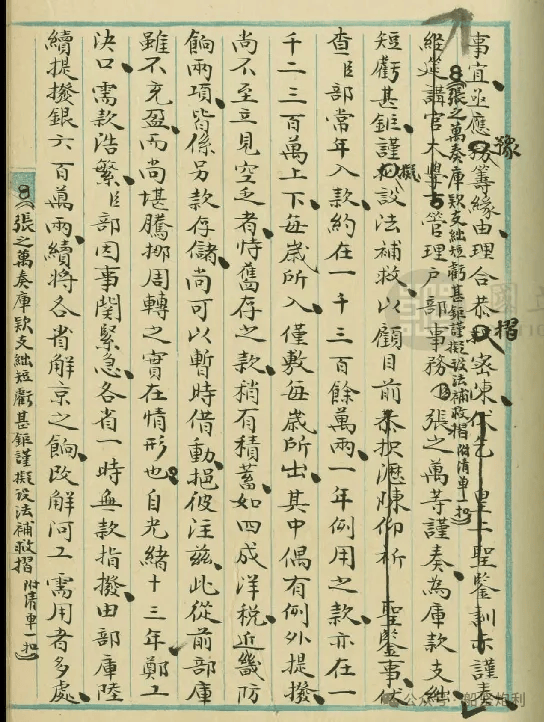 事宜亟應豫籌緣由理合恭摺密陳伏乞 皇上聖鑒訓示謹奏
8(張之萬奏庫款支絀短虧甚鉅謹擬設法補救摺附清單一扣)
經筵講官大學士管理戶部事務臣張之萬等謹奏為庫款支絀
短虧甚鉅謹擬設法補救以顧目前恭摺瀝陳仰祈 聖鑒事伏
查臣部常年入款約在一千三百餘萬兩一年例用之款亦在一
千二三百萬上下每歲所入僅敷每歲所出其中偶有例外提撥
尚不至立見空乏者恃舊存之款稍有積蓄如四成洋稅近畿防
餉兩項皆係另款存儲尚可以暫時借動挹彼注茲此從前部庫
雖不充盈而尚堪騰挪周轉之實在情形也自光緒十三年鄭工
決口需款浩繁臣部因事關緊急各省一時無款指撥由部庫陸
續提撥銀六百萬兩續將各省解京之餉改解河工需用者多處
8(張之萬奏庫款支絀短虧甚鉅謹擬設法補救摺附清單一扣)
公众号·船坚炮利